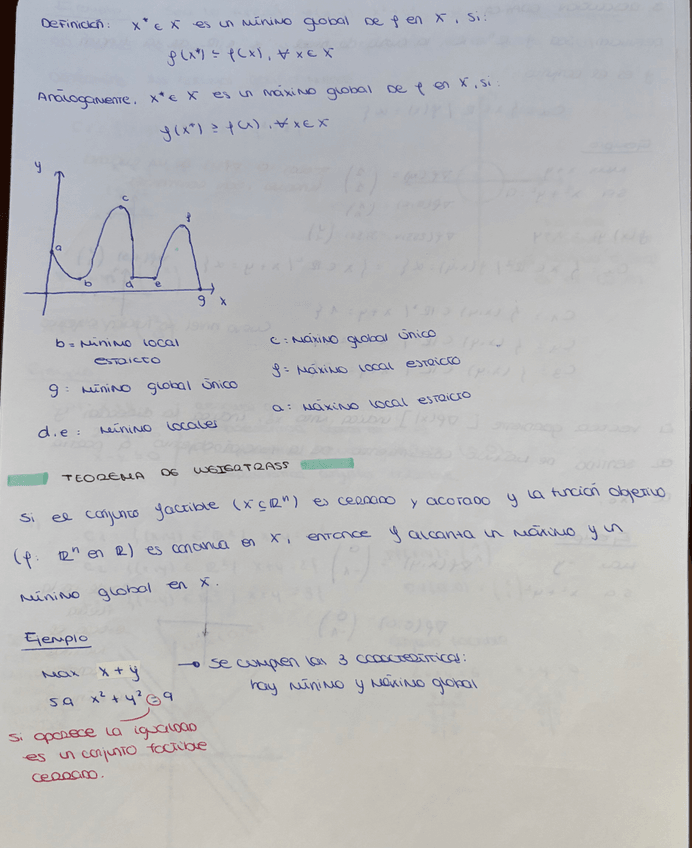 Definición: x* ∈ X es un mínimo global de f en X, si:
f(x*) ≤ f(x), ∀ x ∈ X
Análogamente, x* ∈ X es un máximo global de f en X, si:
f(x*) ≥ f(x), ∀ x ∈ X
y
a
b
c
d
e
f
g
x
b = mínimo local
estricto
c: máximo global único
g: mínimo global único
f: máximo local estricto
a: máximo local estricto
d, e: mínimo locales
TEOREMA DE WEIERTRASS
Si el conjunto factible (X ⊆ ℝⁿ) es cerrado y acotado y la función objetivo
(f: ℝⁿ en ℝ) es continua en X, entonce f alcanta un máximo y un
mínimo global en X.
Ejemplo
Max x + y → Se cumplen las 3 características:
hay mínimo y máximo global
s.a x² + y² = 9
Si aparece la igualdad
es un conjunto factible
cerrado.